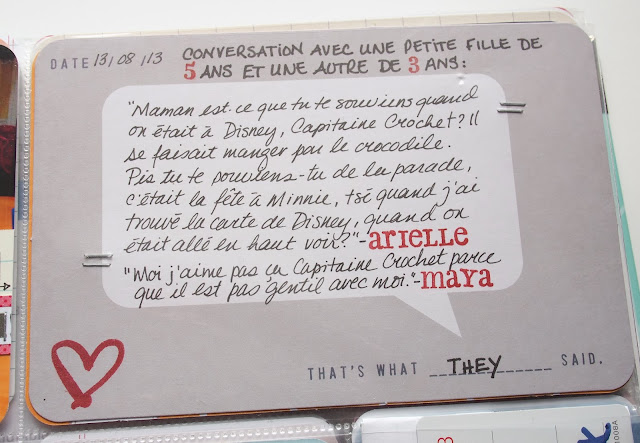 DATE 13/08/13 CONVERSATION AVEC UNE PETITE FILLE DE
5 ANS ET UNE AUTRE DE 3 ANS:
"Maman est ce que tu te souviens quand
on était à Disney, Capitaine Crochet? Il
se faisait manger par le crocodile.
Pis tu te souviens-tu de la parade,
c'était la fête à Minnie, tsé quand j'ai
trouvé la carte de Disney, quand on
était allé en haut voir?"-arielle
"Moi j'aime pas ça Capitaine Crochet parce
que il est pas gentil avec moi."-maya
THAT'S WHAT THEY SAID.